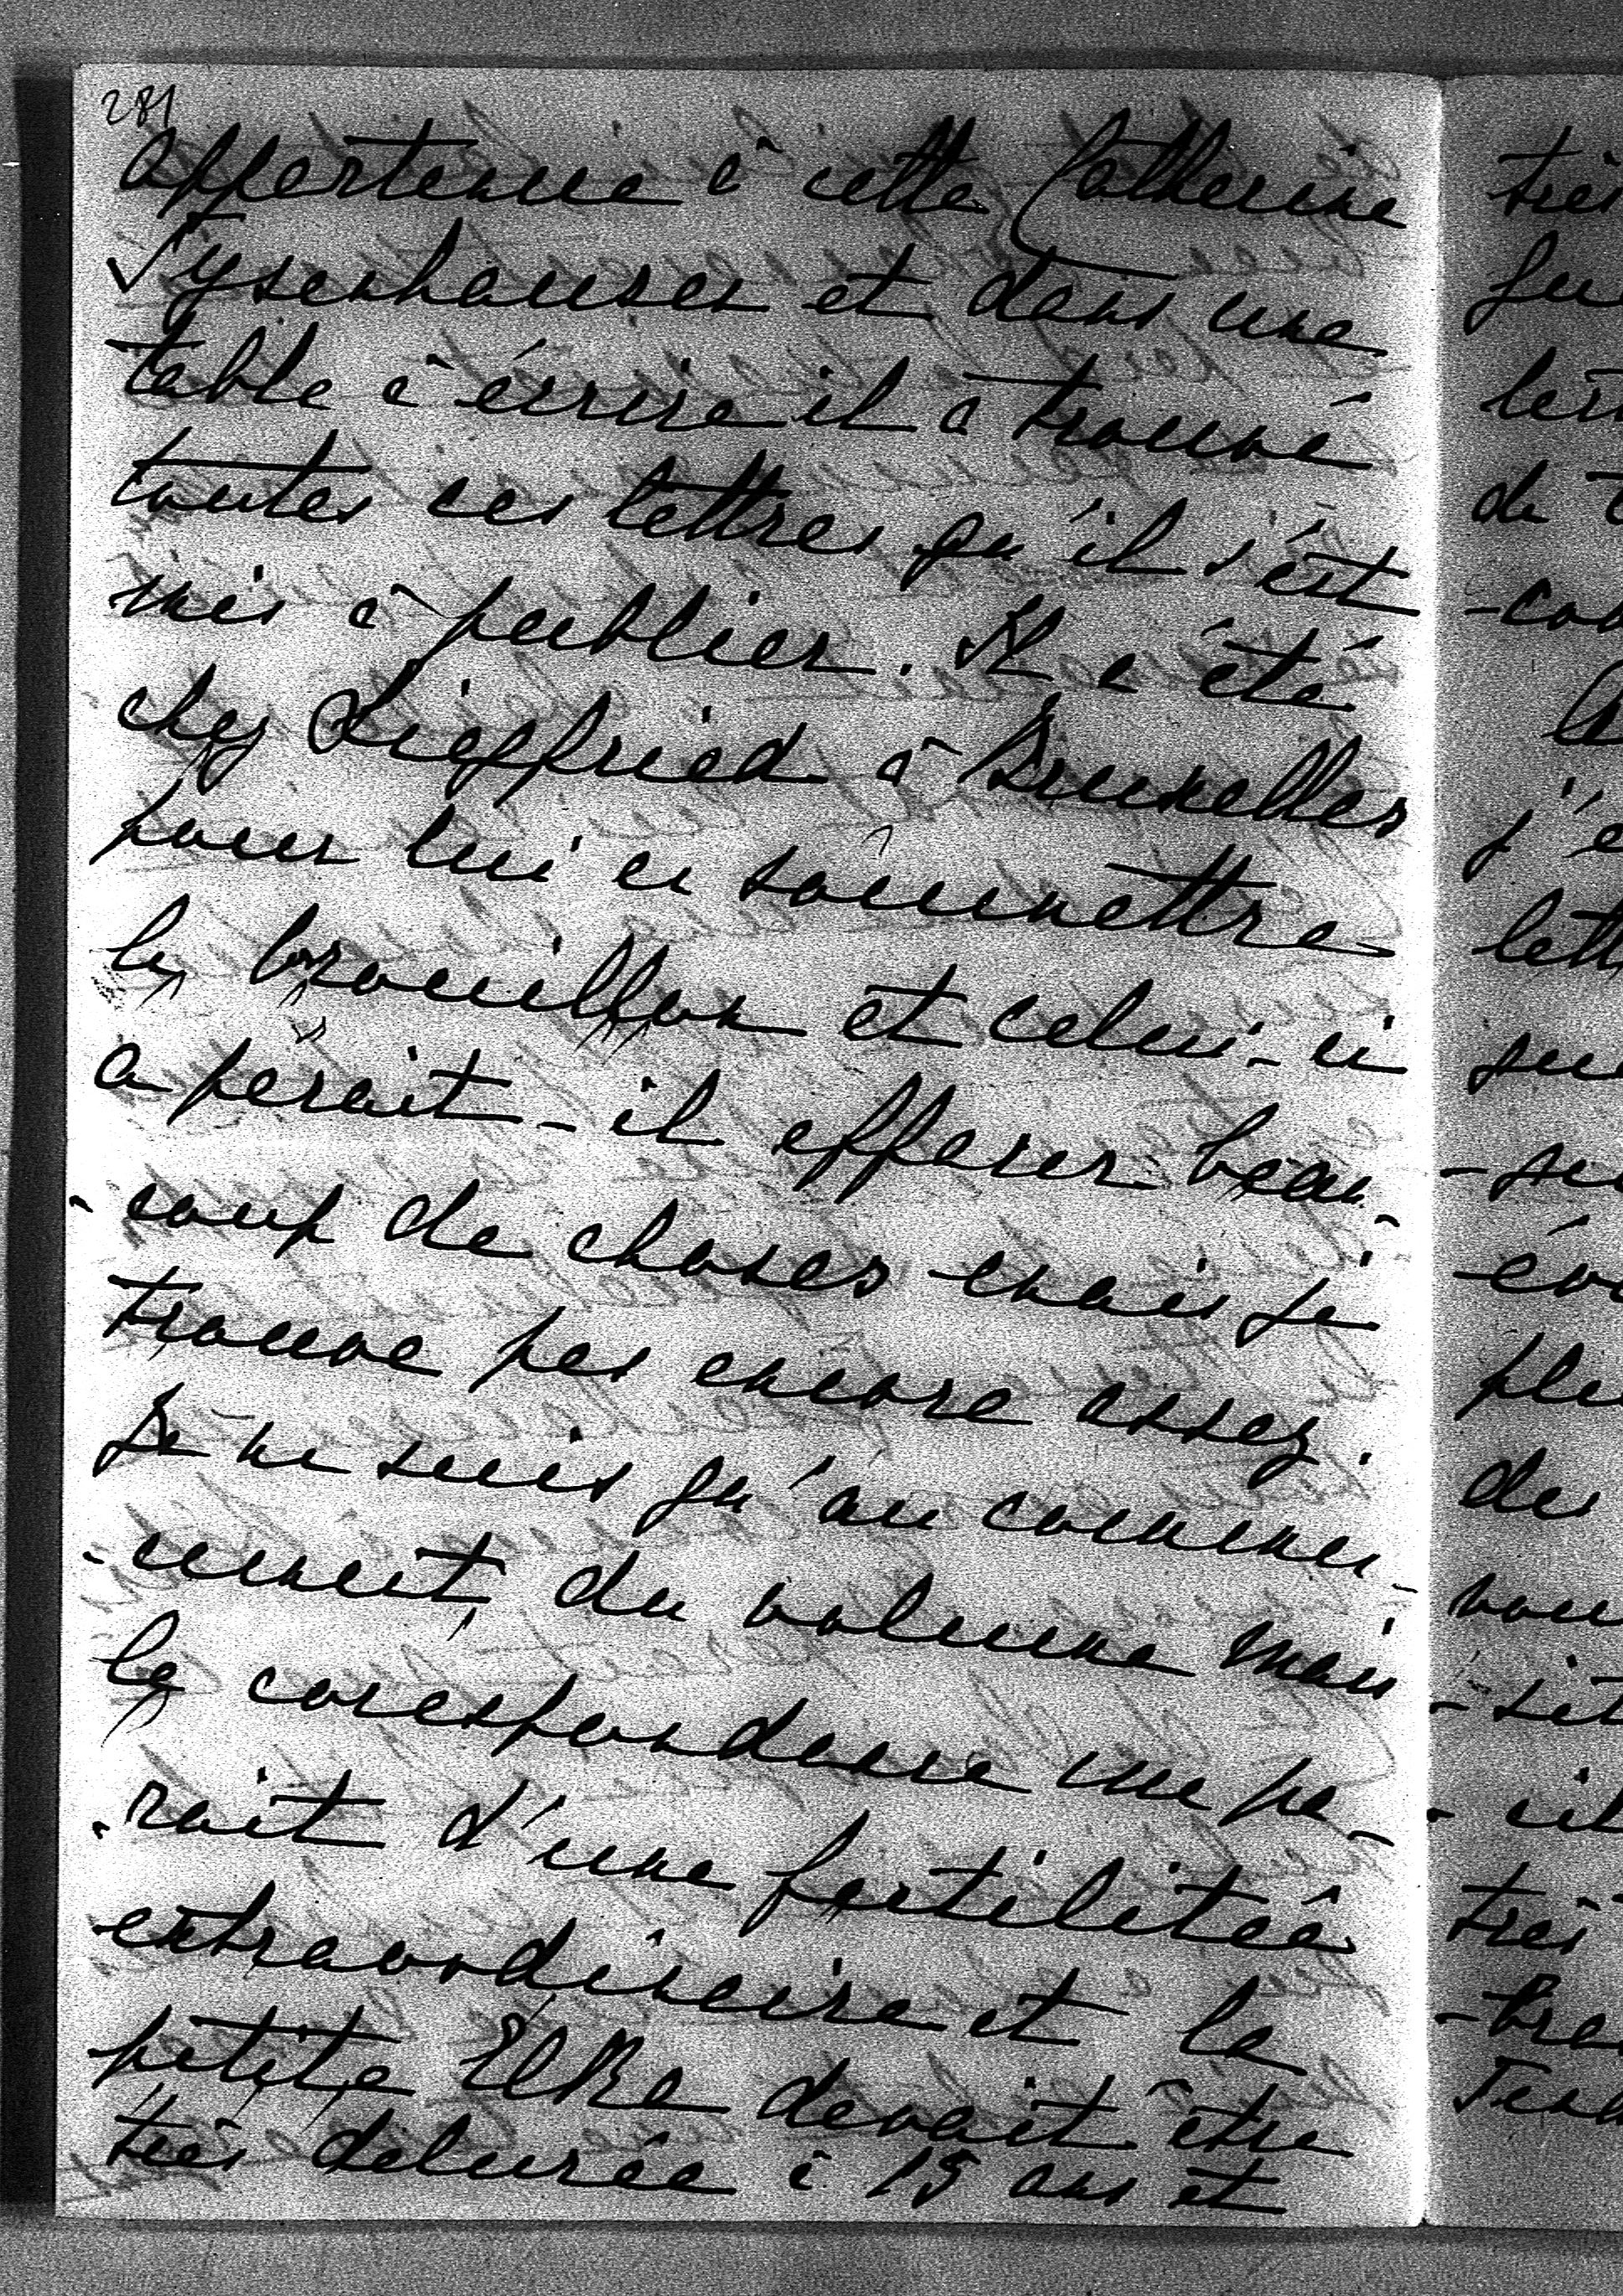 281
appartenue à cette Catherine
Nysenhausen et dans une
table à écrire il a trouvé
toutes ces lettres qu'il s'est
mis à publier. Il a été
chez Siegfried à Bruxelles
pour lui en soumettre
le brouillon et celui-ci
a parait-il effacer beau-
-coup de choses mais je
trouve pas encore assez.
Je ne suis qu'au commen-
-cement du volume mais
la corespondance me pa-
-rait d'une fertilitée
extraordinaire et la
petite Elka devait être
très delurée à 15 ans et